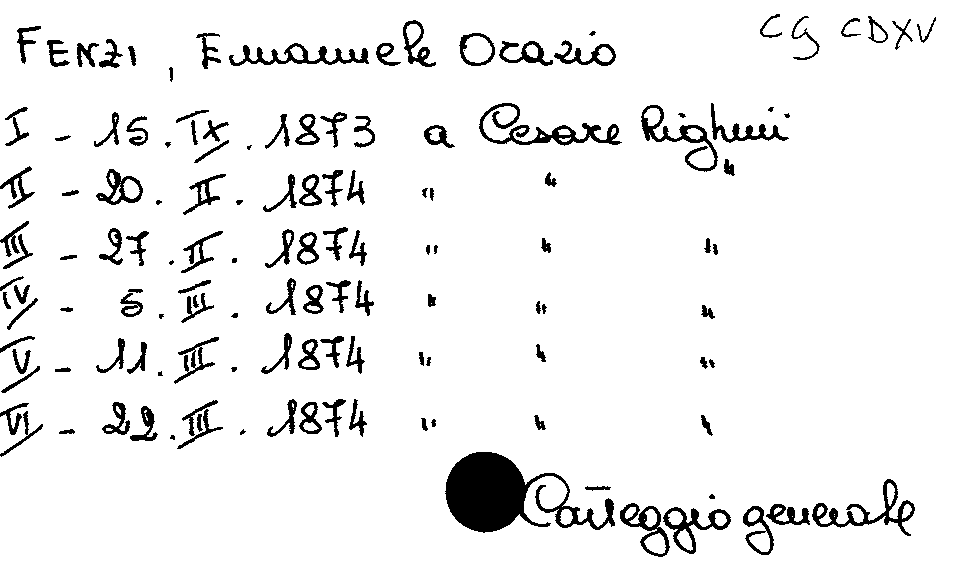 FENZI, Emanuele Orazio CG CDXV
I - 15. IX. 1873 a Cesare Righini
II - 20. II. 1874 " " "
III - 27. II. 1874 " " "
IV - 5. III. 1874 " " "
V - 11. III. 1874 " " "
VI - 22. III. 1874 " " "
Carteggio generale